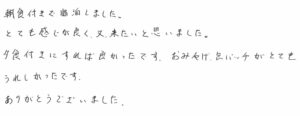 朝食付きで宿泊しました。
とても感じが良く、又、来たいと思いました。
夕食付きにすれば良かったです。おみやげ、缶バッチがとても
うれしかったです。
ありがとうございました。